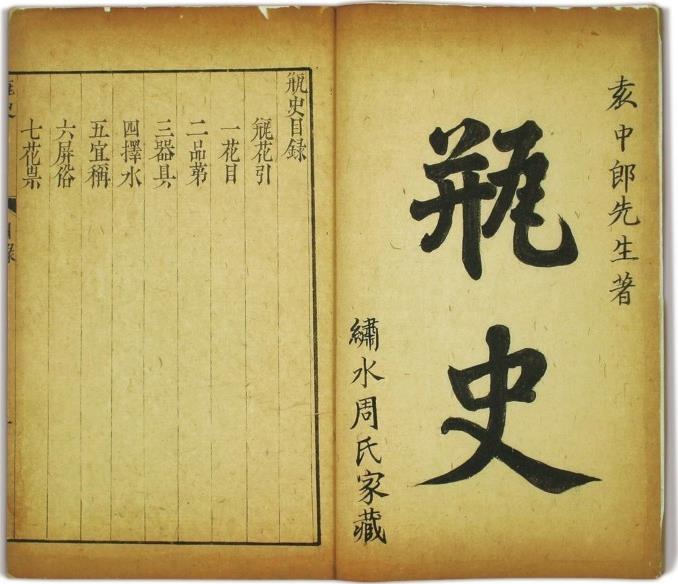 袁中郎先生著
瓶史
繡水周氏家藏
瓶史目録
瓶花引
一花目
二品苐
三器具
四擇水
五宜稱
六屏俗
七花祟